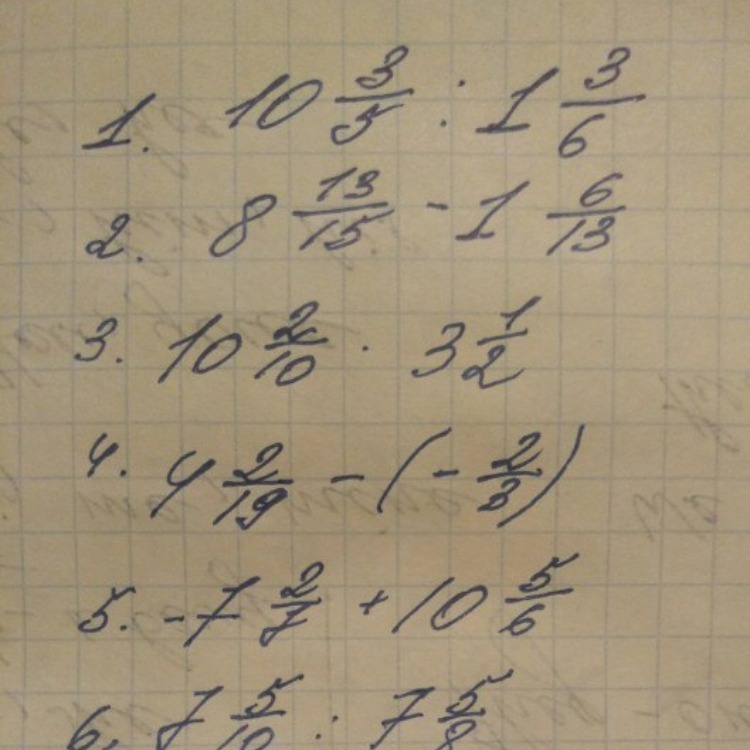 1. 10 3/5 : 1 3/6
2. 8 13/15 - 1 6/13
3. 10 2/10 · 3 1/2
4. 4 2/19 - (- 2/3)
5. -7 2/7 + 10 5/6
6. 7 5/10 : 7 5/8